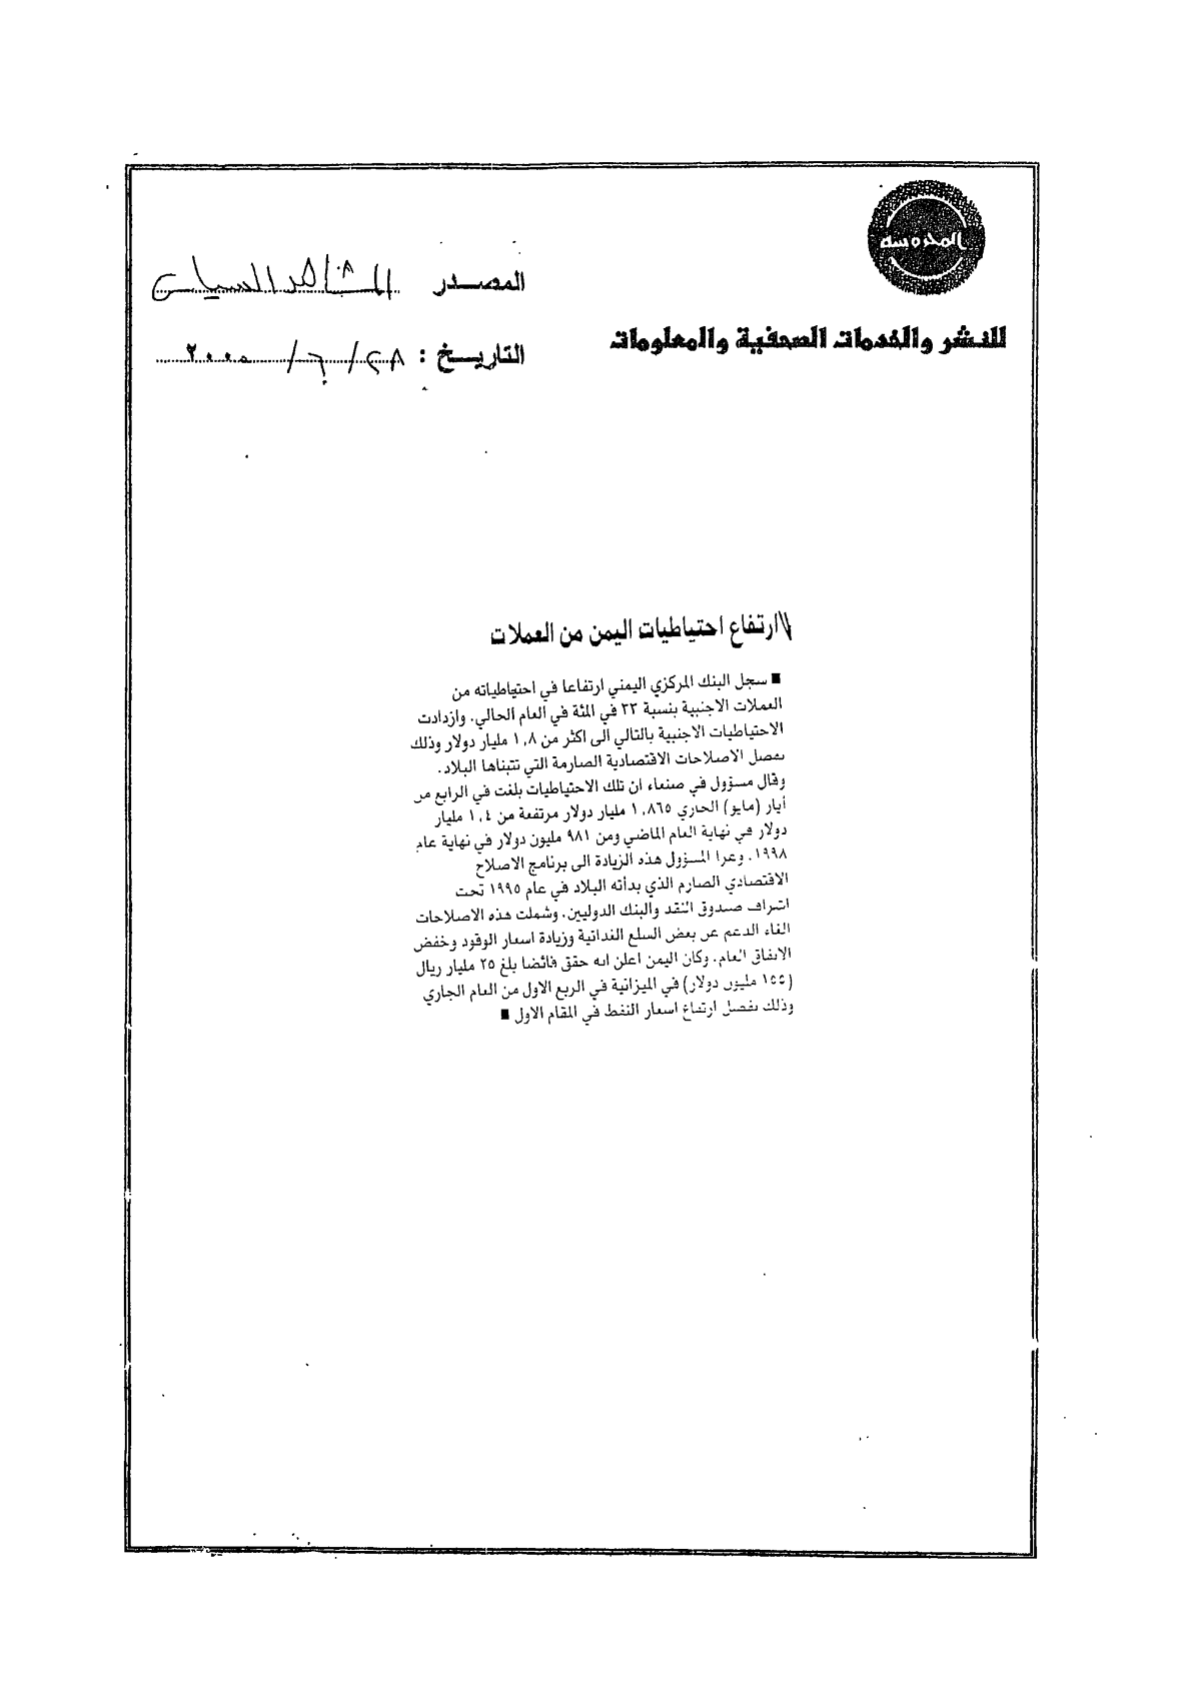 المحروسة
للنشر والخدمات الصحفية والمعلومات
المصدر المشاهد السياسي
التاريخ : ٢٨/٦/٢٠٠٠
ارتفاع احتياطيات اليمن من العملات
■ سجل البنك المركزي اليمني ارتفاعا في احتياطياته من
العملات الاجنبية بنسبة ٢٣ في المئة في العام الحالي. وازدادت
الاحتياطيات الاجنبية بالتالي الى اكثر من ١,٨ مليار دولار وذلك
بفضل الاصلاحات الاقتصادية الصارمة التي تتبناها البلاد.
وقال مسؤول في صنعاء ان تلك الاحتياطيات بلغت في الرابع من
أيار (مايو) الجاري ١,٨٦٥ مليار دولار مرتفعة من ١,٤ مليار
دولار في نهاية العام الماضي ومن ٩٨١ مليون دولار في نهاية عام
١٩٩٨. وعزا المسؤول هذه الزيادة الى برنامج الاصلاح
الاقتصادي الصارم الذي بدأته البلاد في عام ١٩٩٥ تحت
اشراف صندوق النقد والبنك الدوليين. وشملت هذه الاصلاحات
الغاء الدعم عن بعض السلع الغذائية وزيادة اسعار الوقود وخفض
الانفاق العام. وكان اليمن اعلن انه حقق فائضا بلغ ٢٥ مليار ريال
(١٥٥ مليون دولار) في الميزانية في الربع الاول من العام الجاري
وذلك بفضل ارتفاع اسعار النفط في المقام الاول ■